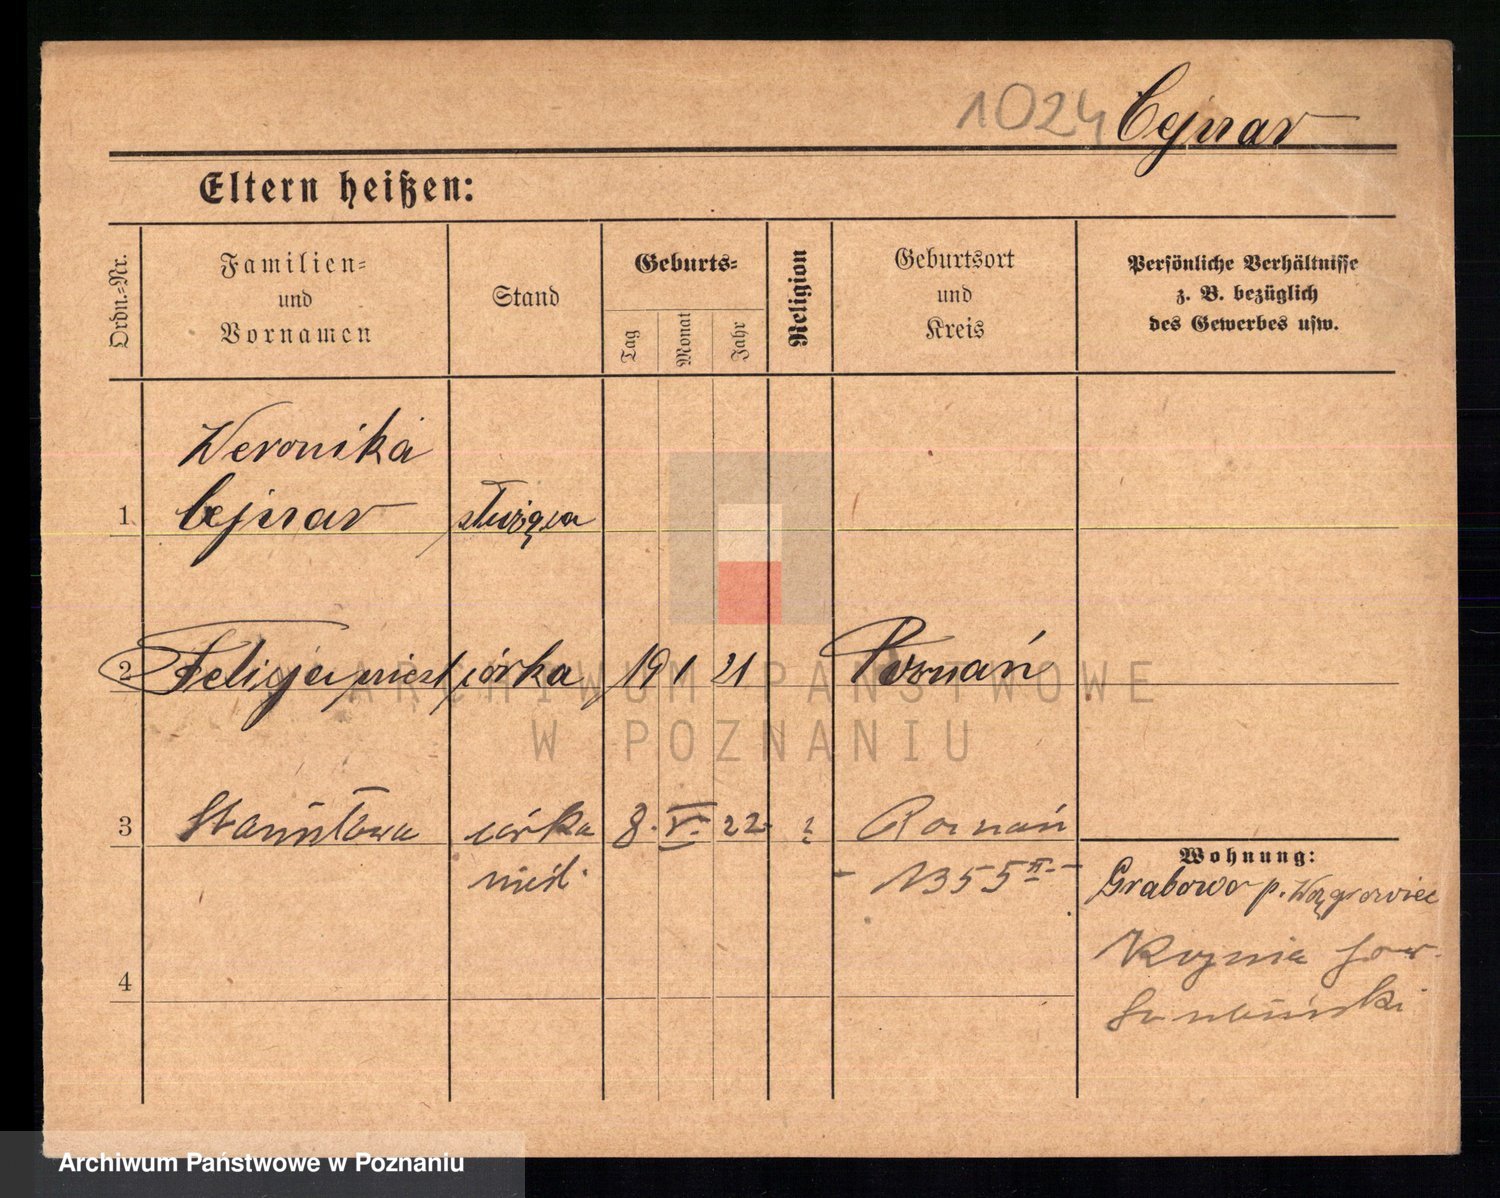 1024 Cejnar
Eltern heißen:
Ordn.-Nr.
Familien-
und
Vornamen
Stand
Geburts-
Tag
Monat
Jahr
Religion
Geburtsort
und
Kreis
Persönliche Verhältnisse
z. B. bezüglich
des Gewerbes usw.
Weronika
1 Cejnar służąca
2 Felicja nieśl córka 19 1 21 Poznań
3 Stanisława córka 8. VI. 22 ? Poznań
nieśl. - 1355 II -
Wohnung:
Grabowo p. Wągrowiec
Kcynia pow.
Szubiński
4
ARCHIWUM PAŃSTWOWE
W POZNANIU
Archiwum Państwowe w Poznaniu